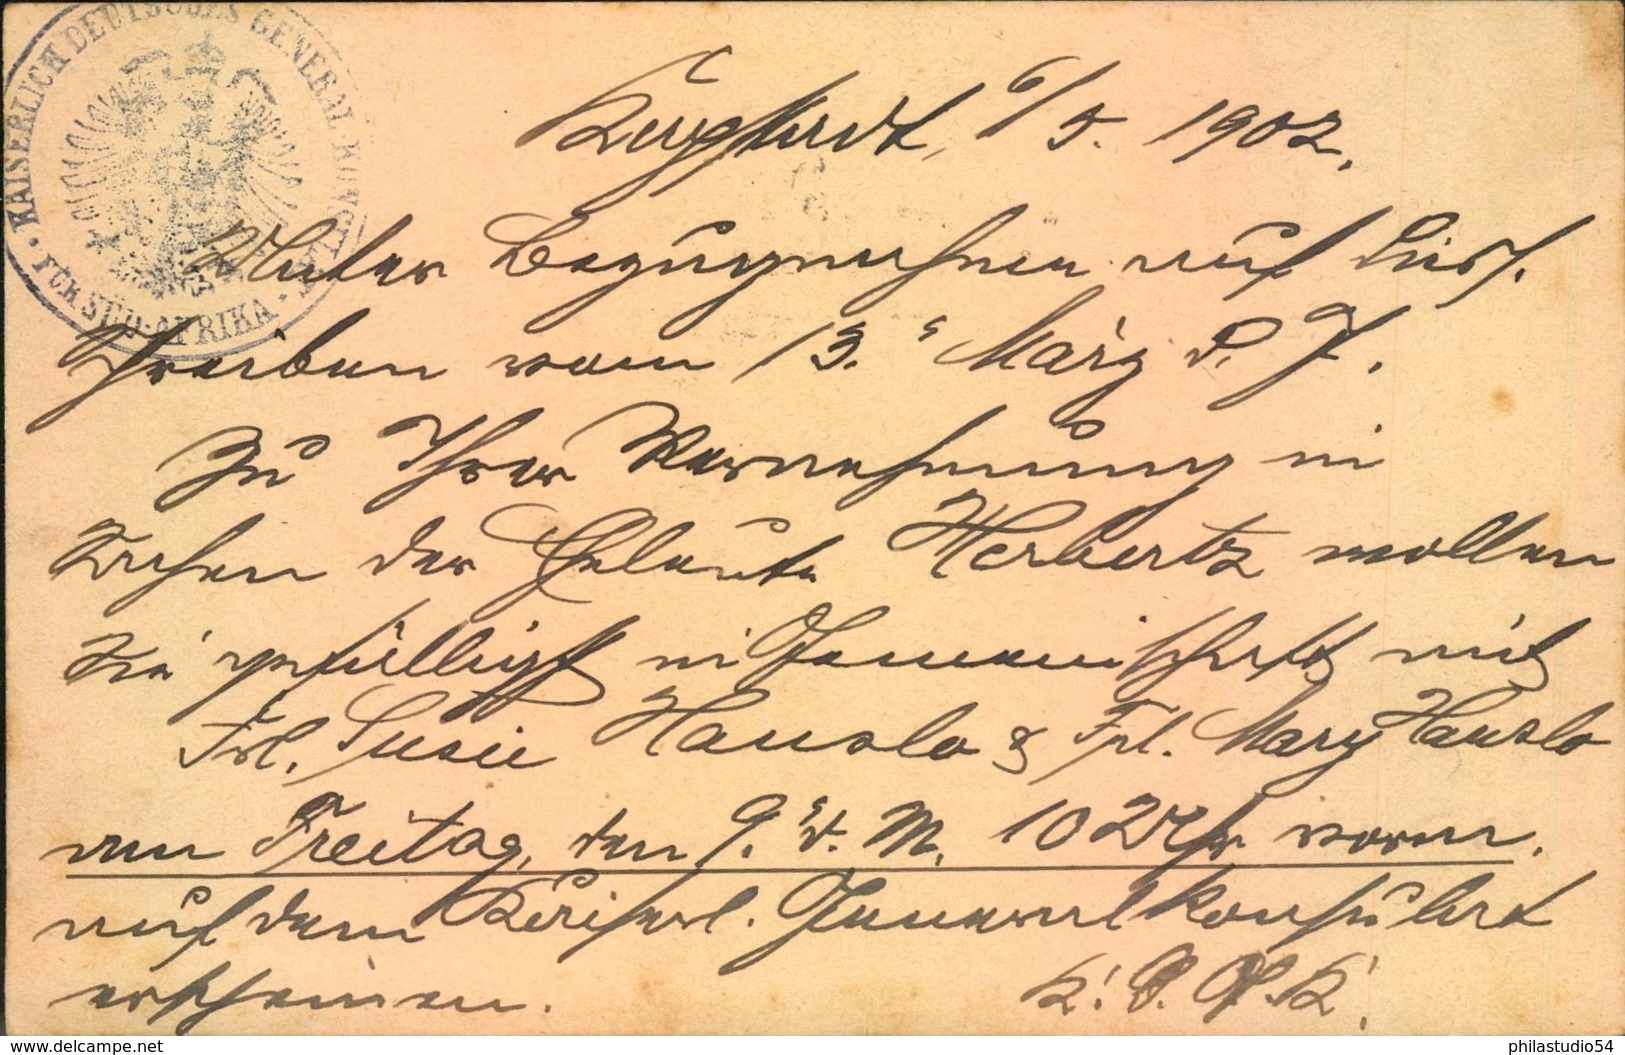 KAISERLICH DEUTSCHES GENERAL-KONSULAT
FÜR SÜD-AFRIKA
Kapstadt, 6/5. 1902.
Unter Bezugnahme auf dies.
Schreiben vom 13. März d. J.
Zu Ihrer Vernehmung in
Sachen der Eheleute Herbertz wollen
Sie gefälligst in Gemeinschaft mit
Frl. Susie Hauslo & Frl. Mary Hauslo
am Freitag, den 9. d. M. 10 Uhr vorm.
auf dem Kaiserl. Generalkonsulat
erscheinen. K. D. G. K.
www.delcampe.net
philastudio54